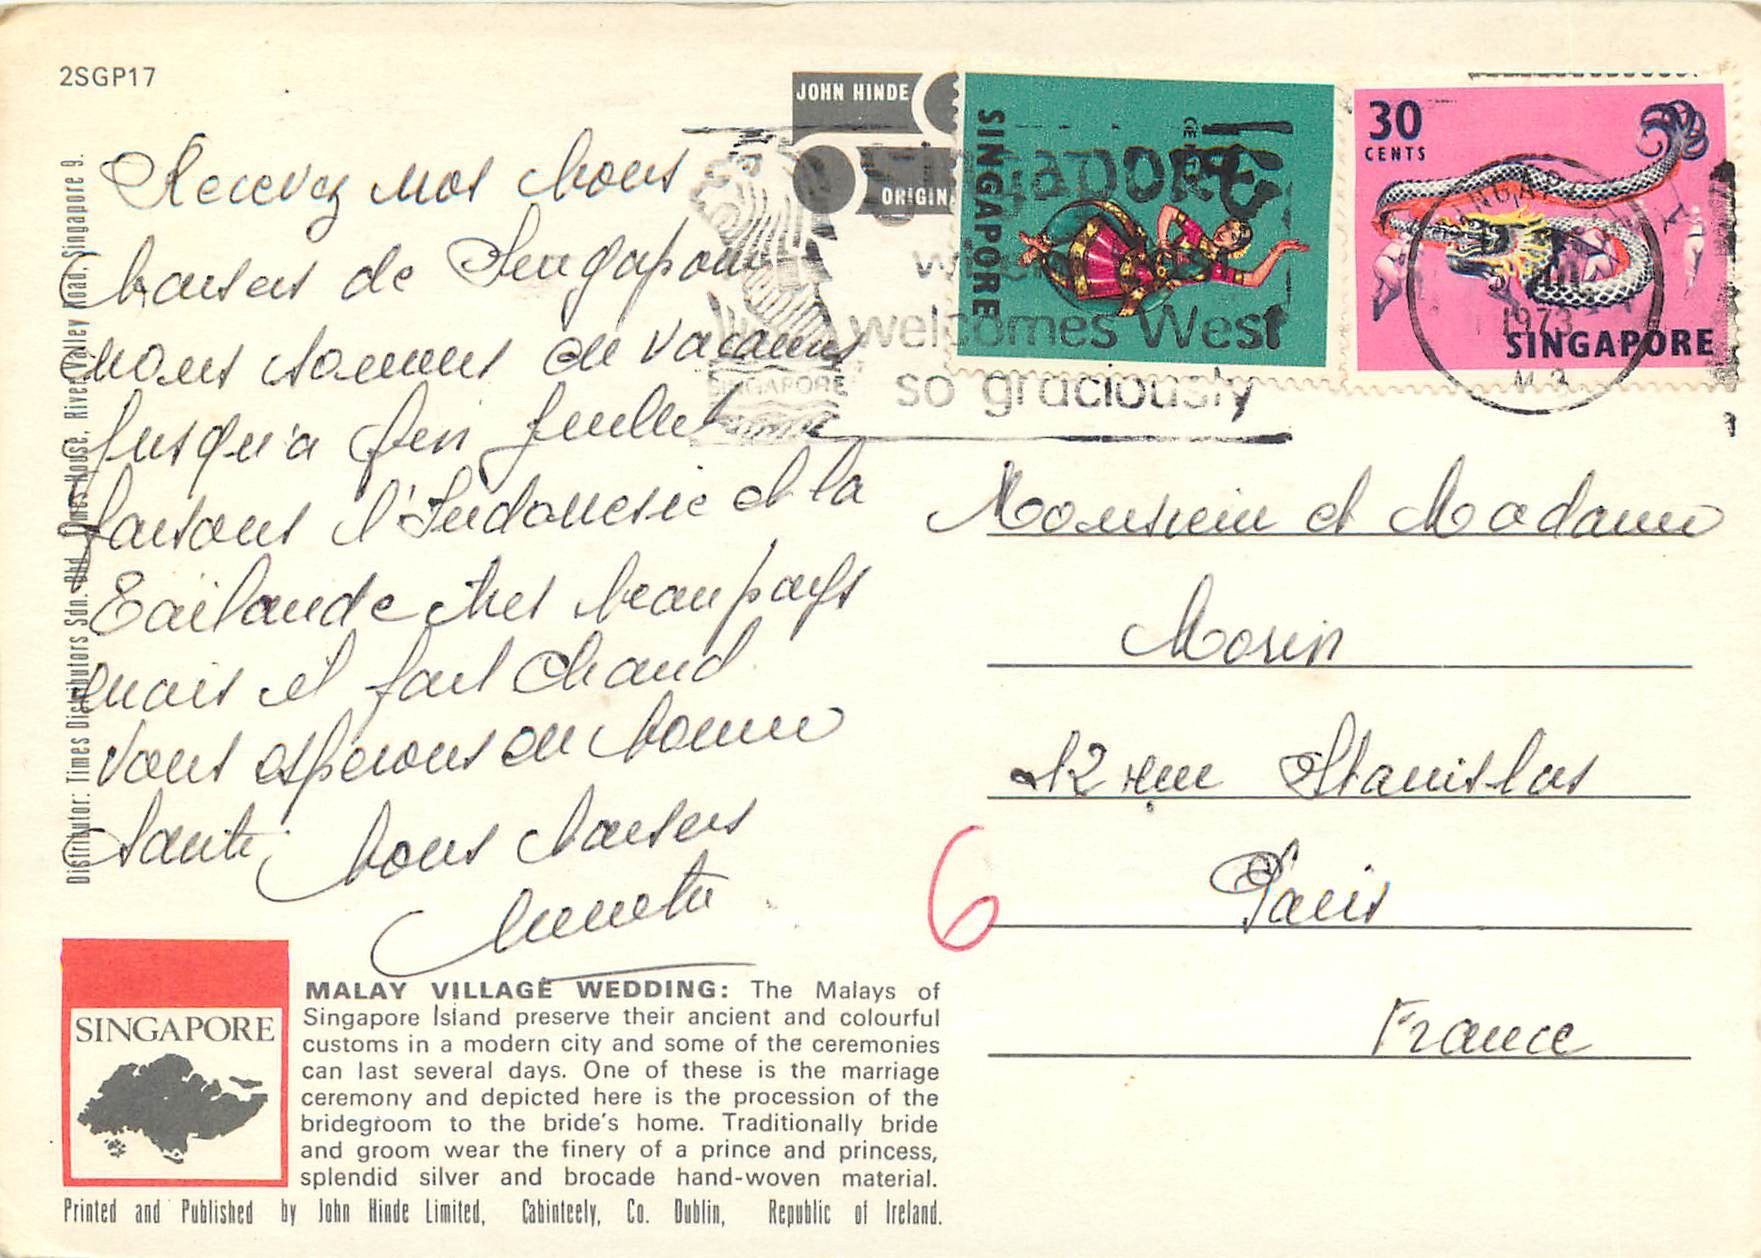 2SGP17
JOHN HINDE
ORIGIN
SINGAPORE
30
CENTS
SINGAPORE
SINGAPORE
welcomes West
so graciously
SINGAPORE
1973
Recevez nos bons
baisers de Singapour
nous sommes en vacances
jusqu'a fin juillet
faisons l'Indonesie et la
Tailande tres beau pays
mais il fait chaud
Vous esperons en bonne
Sante, bons baisers
Monsieur et Madame
Morin
12 rue Stanislas
Paris
France
6
Distributor: Times Distributors Sdn. Bhd. Times House, River Valley Road, Singapore 9.
SINGAPORE
MALAY VILLAGE WEDDING: The Malays of
Singapore Island preserve their ancient and colourful
customs in a modern city and some of the ceremonies
can last several days. One of these is the marriage
ceremony and depicted here is the procession of the
bridegroom to the bride's home. Traditionally bride
and groom wear the finery of a prince and princess,
splendid silver and brocade hand-woven material.
Printed and Published by John Hinde Limited, Cabinteely, Co. Dublin, Republic of Ireland.